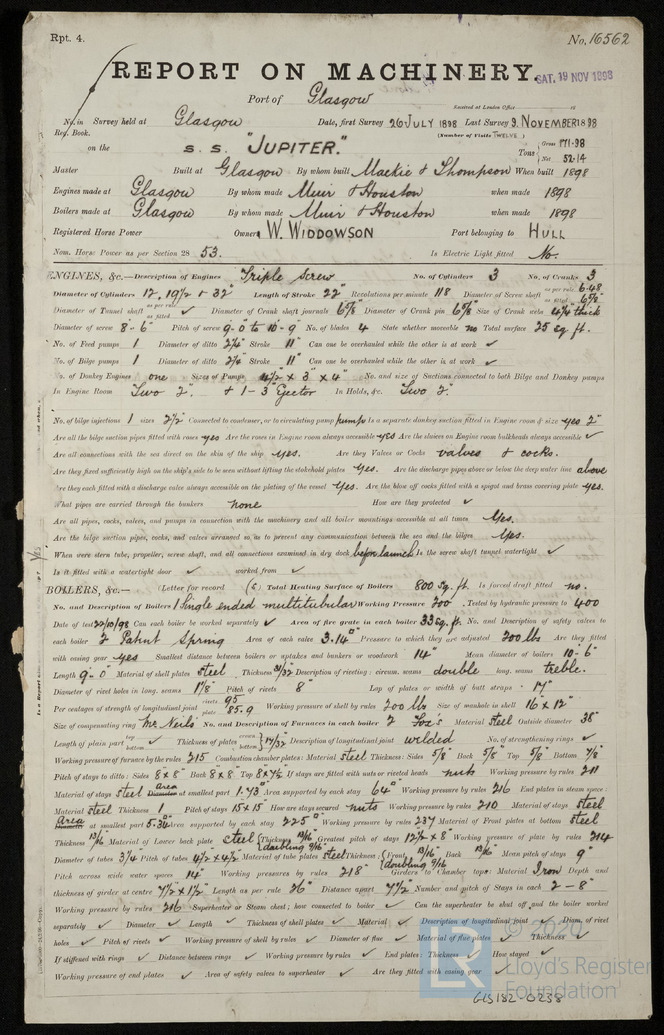 Rpt. 4.
No. 16562
REPORT ON MACHINERY.
SAT. 19 NOV 1898
Port of Glasgow
Received at London Office
No. in Survey held at Glasgow Date, first Survey 26 JULY 1898 Last Survey 9. NOVEMBER 1898
Reg. Book. (Number of Visits TWELVE)
on the S. S. "JUPITER." Tons Gross 171.98 Net 52.14
Master Built at Glasgow By whom built Mackie & Thompson When built 1898
Engines made at Glasgow By whom made Muir & Houston when made 1898
Boilers made at Glasgow By whom made Muir & Houston when made 1898
Registered Horse Power Owners W. WIDDOWSON Port belonging to HULL
Nom. Horse Power as per Section 28 53. Is Electric Light fitted No.
ENGINES, &c.—Description of Engines Triple Screw No. of Cylinders 3 No. of Cranks 3
Diameter of Cylinders 12, 19½ & 32" Length of Stroke 22" Revolutions per minute 118 Diameter of Screw shaft as per rule 6.48 as fitted 6⅝
Diameter of Tunnel shaft as per rule as fitted ✓ Diameter of Crank shaft journals 6⅝ Diameter of Crank pin 6⅝ Size of Crank webs 4¼ thick
Diameter of screw 8-6 Pitch of screw 9-0 to 10-9" No. of blades 4 State whether moveable no Total surface 25 sq ft.
No. of Feed pumps 1 Diameter of ditto 2¼ Stroke 11" Can one be overhauled while the other is at work ✓
No. of Bilge pumps 1 Diameter of ditto 2¼ Stroke 11" Can one be overhauled while the other is at work ✓
No. of Donkey Engines one Sizes of Pumps 4½ x 3" x 4" No. and size of Suctions connected to both Bilge and Donkey pumps
In Engine Room Two 2". & 1-3" Ejector In Holds, &c. Two 2".
No. of bilge injections 1 sizes 2½ Connected to condenser, or to circulating pump pump Is a separate donkey suction fitted in Engine room & size yes 2"
Are all the bilge suction pipes fitted with roses yes Are the roses in Engine room always accessible yes Are the sluices on Engine room bulkheads always accessible ✓
Are all connections with the sea direct on the skin of the ship yes. Are they Valves or Cocks valves & cocks.
Are they fixed sufficiently high on the ship's side to be seen without lifting the stokehold plates yes. Are the discharge pipes above or below the deep water line above
Are they each fitted with a discharge valve always accessible on the plating of the vessel yes. Are the blow off cocks fitted with a spigot and brass covering plate yes.
What pipes are carried through the bunkers none How are they protected ✓
Are all pipes, cocks, valves, and pumps in connection with the machinery and all boiler mountings accessible at all times Yes.
Are the bilge suction pipes, cocks, and valves arranged so as to prevent any communication between the sea and the bilges Yes.
When were stern tube, propeller, screw shaft, and all connections examined in dry dock before launch Is the screw shaft tunnel watertight ✓
Is it fitted with a watertight door ✓ worked from ✓
BOILERS, &c.— (Letter for record (S) Total Heating Surface of Boilers 800 sq. ft. Is forced draft fitted no.
No. and Description of Boilers 1 Single ended multitubular Working Pressure 200 Tested by hydraulic pressure to 400
Date of test 22/10/98 Can each boiler be worked separately ✓ Area of fire grate in each boiler 33 sq. ft. No. and Description of safety valves to
each boiler 2 Patent Spring Area of each valve 3.14" Pressure to which they are adjusted 200 lbs Are they fitted
with easing gear yes Smallest distance between boilers or uptakes and bunkers or woodwork 14" Mean diameter of boilers 10-6"
Length 9-0 Material of shell plates steel Thickness 31/32 Description of riveting: circum. seams double long. seams treble.
Diameter of rivet holes in long. seams 1⅛ Pitch of rivets 8" Lap of plates or width of butt straps 17"
Per centages of strength of longitudinal joint rivets 95 plate 85.9 Working pressure of shell by rules 200 lbs Size of manhole in shell 16 x 12"
Size of compensating ring McNeils No. and Description of Furnaces in each boiler 2 Fox's Material steel Outside diameter 38"
Length of plain part top bottom ✓ Thickness of plates crown bottom 17/32 Description of longitudinal joint welded No. of strengthening rings ✓
Working pressure of furnace by the rules 215 Combustion chamber plates: Material steel Thickness: Sides ⅝ Back ⅝ Top ⅝ Bottom ⅞
Pitch of stays to ditto: Sides 8 x 8 Back 8 x 8 Top 8 x 7½ If stays are fitted with nuts or riveted heads nuts Working pressure by rules 211
Material of stays steel Area Diameter at smallest part 1.73 Area supported by each stay 64 Working pressure by rules 216 End plates in steam space:
Material steel Thickness 1 Pitch of stays 15 x 15 How are stays secured nuts Working pressure by rules 210 Material of stays steel
Area Diameter at smallest part 5.34 Area supported by each stay 225 Working pressure by rules 237 Material of Front plates at bottom steel
Thickness 13/16 Material of Lower back plate steel Thickness 13/16 doubling 9/16 Greatest pitch of stays 12½ x 8 Working pressure of plate by rules 214
Diameter of tubes 3¼ Pitch of tubes 4½ x 4½ Material of tube plates steel Thickness: Front 13/16 doubling 9/16 Back 13/16 Mean pitch of stays 9"
Pitch across wide water spaces 14" Working pressures by rules 218 Girders to Chamber tops: Material Iron Depth and
thickness of girder at centre 7½ x 1½ Length as per rule 26" Distance apart 7½ Number and pitch of Stays in each 2-8"
Working pressure by rules 216 Superheater or Steam chest; how connected to boiler ✓ Can the superheater be shut off and the boiler worked
separately ✓ Diameter ✓ Length ✓ Thickness of shell plates ✓ Material ✓ Description of longitudinal joint ✓ Diam. of rivet
holes ✓ Pitch of rivets ✓ Working pressure of shell by rules ✓ Diameter of flue ✓ Material of flue plates ✓ Thickness ✓
If stiffened with rings ✓ Distance between rings ✓ Working pressure by rules ✓ End plates: Thickness ✓ How stayed ✓
Working pressure of end plates ✓ Area of safety valves to superheater ✓ Are they fitted with easing gear ✓
© 2020
LR
Lloyd's Register
Foundation
GLS182-0238